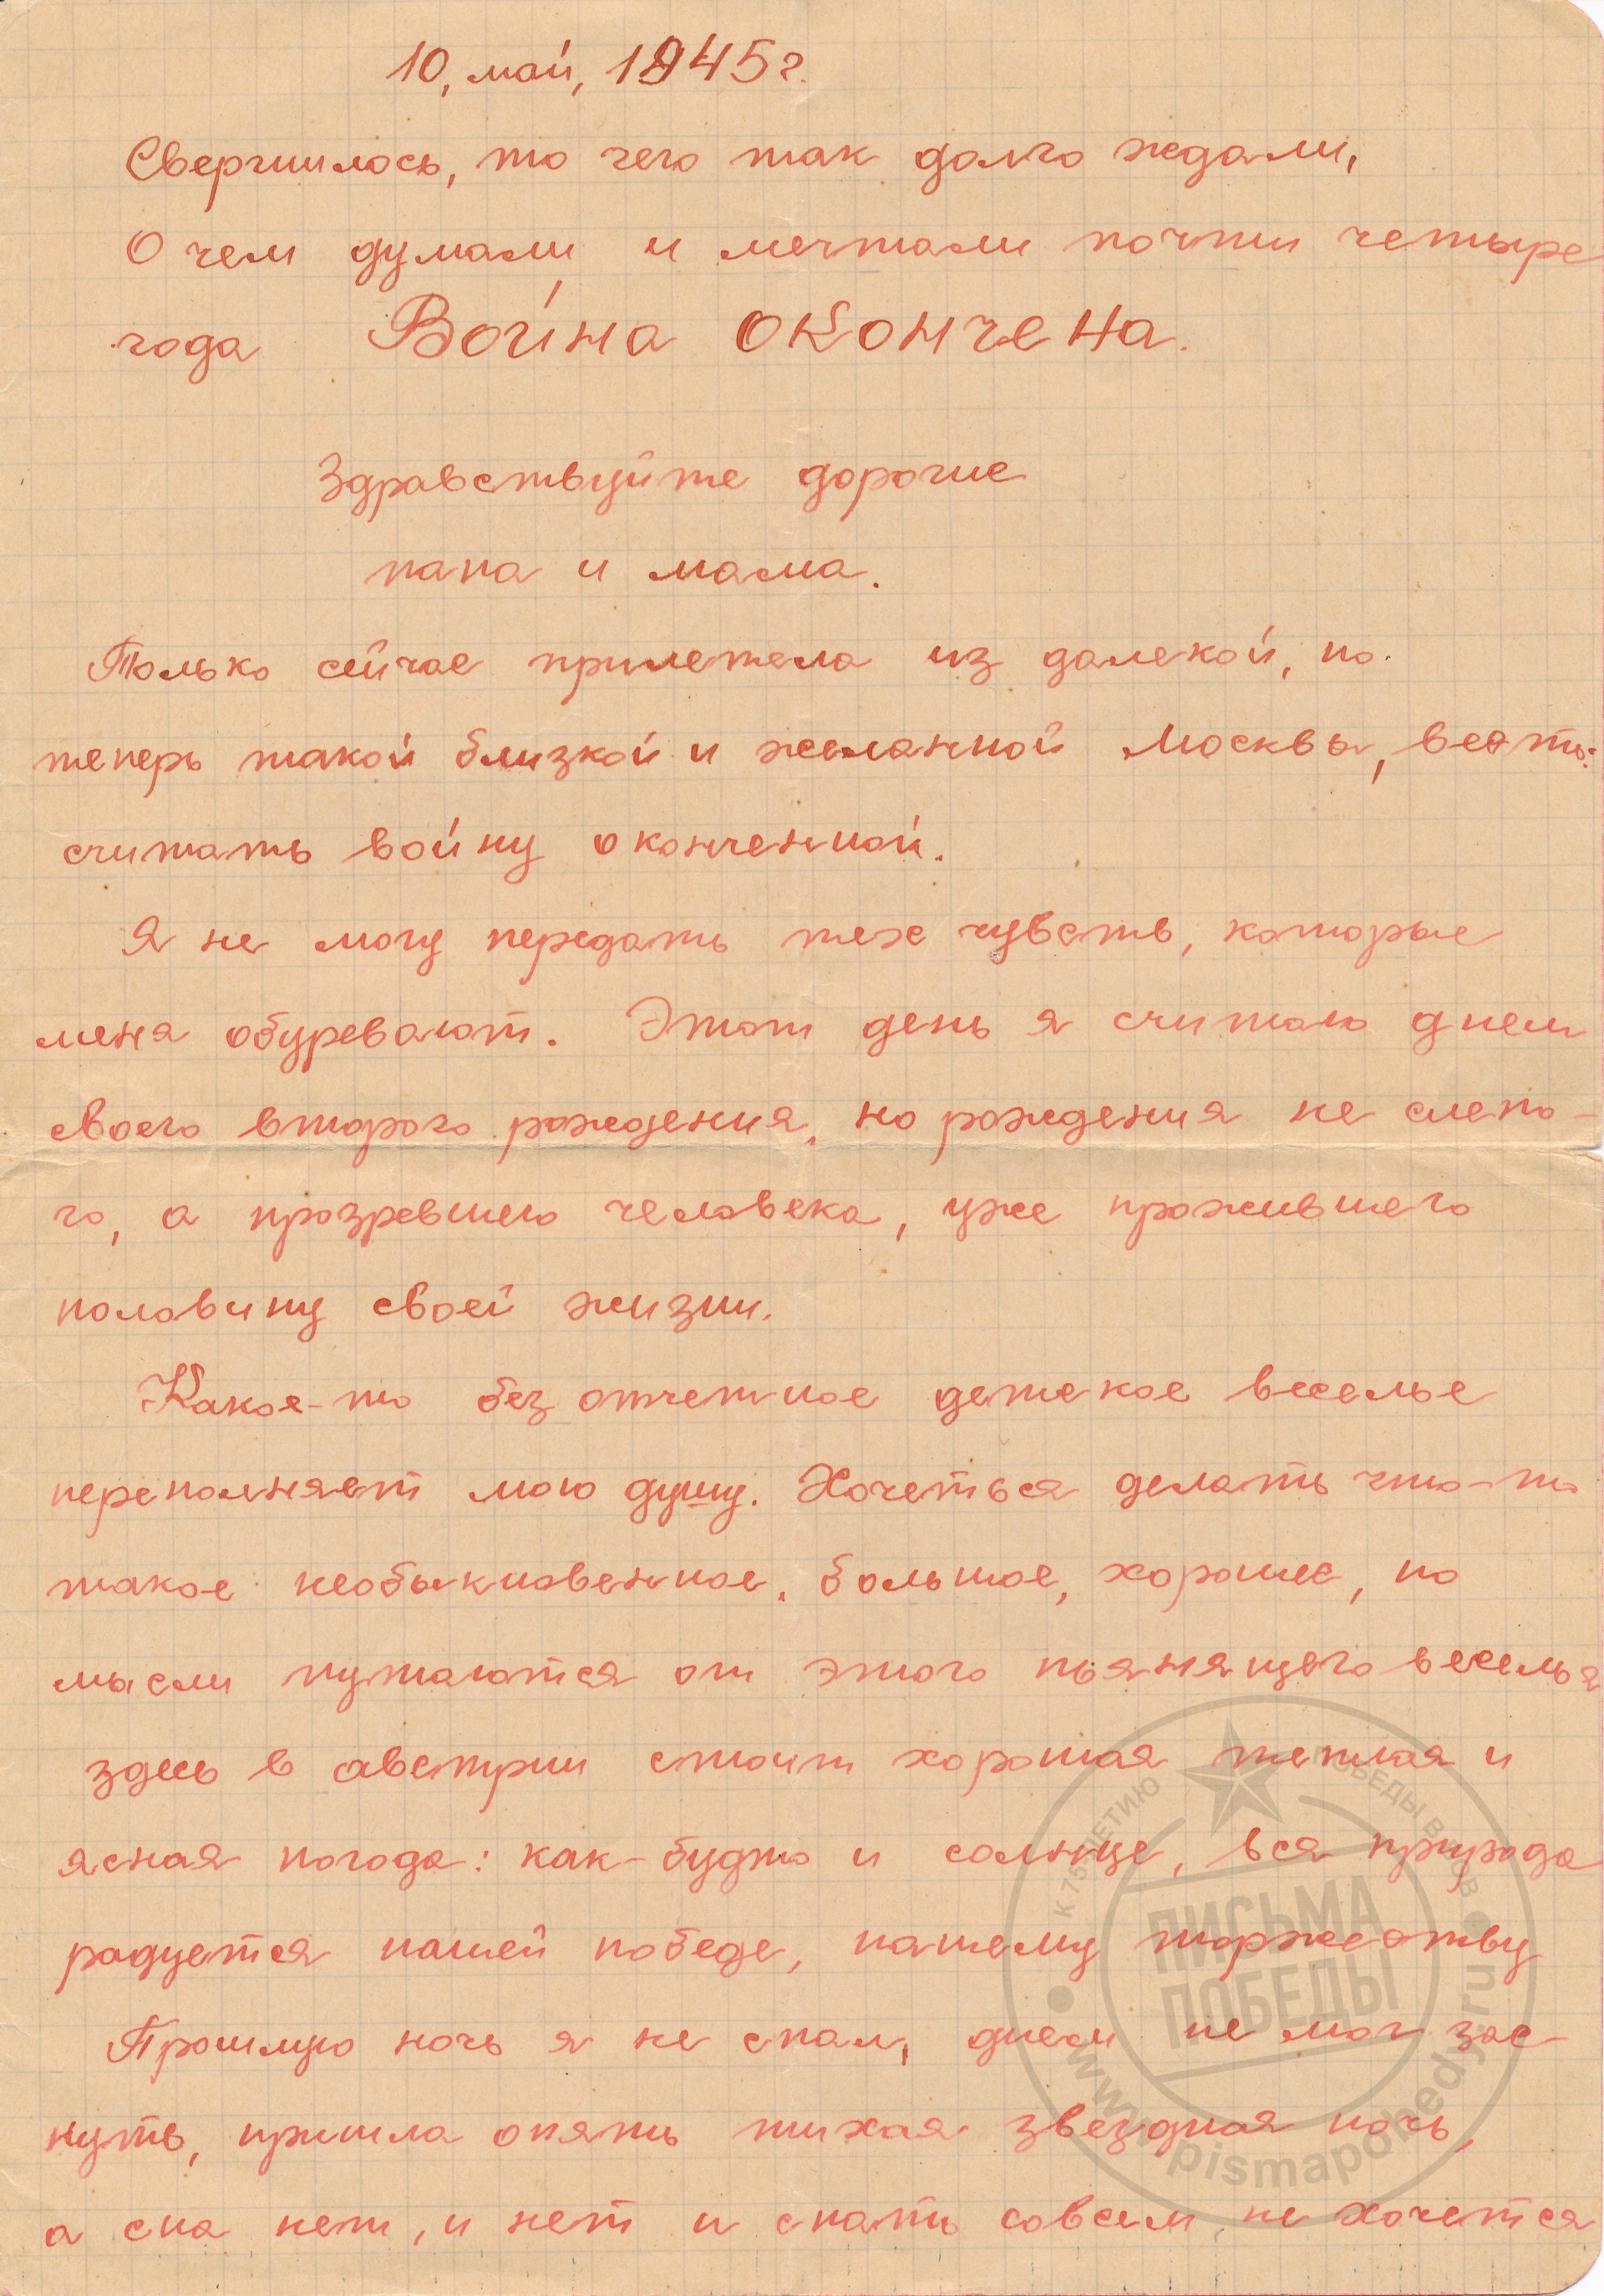 10, май, 1945 г.
Свершилось, то чего так долго ждали,
О чем думали и мечтали почти четыре
года Война окончена.
Здравствуйте дорогие
папа и мама.
Только сейчас прилетела из далекой, но
теперь такой близкой и желанной Москвы, весть:
считать войну оконченной.
Я не могу передать тех чувств, которые
меня обуревают. Этот день я считаю днем
своего второго рождения, но рождения не слепо-
го, а прозревшего человека, уже прожившего
половину своей жизни.
Какое-то безотчетное детское веселье
переполняет мою душу. Хочеться делать что-то
такое необыкновенное, большое, хорошее, но
мысли путаются от этого пьянящего веселья
здесь в австрии стоит хорошая теплая и
ясная погода: как-будто и солнце, вся природа
радуется нашей победе, нашему торжеству
Прошлую ночь я не спал, днем не мог зас-
нуть, пришла опять тихая звездная ночь,
а сна нет, и нет и спать совсем не хочется
К 75-ЛЕТИЮ ПОБЕДЫ В ВОВ
ПИСЬМА
ПОБЕДЫ
www.pismapobedy.ru